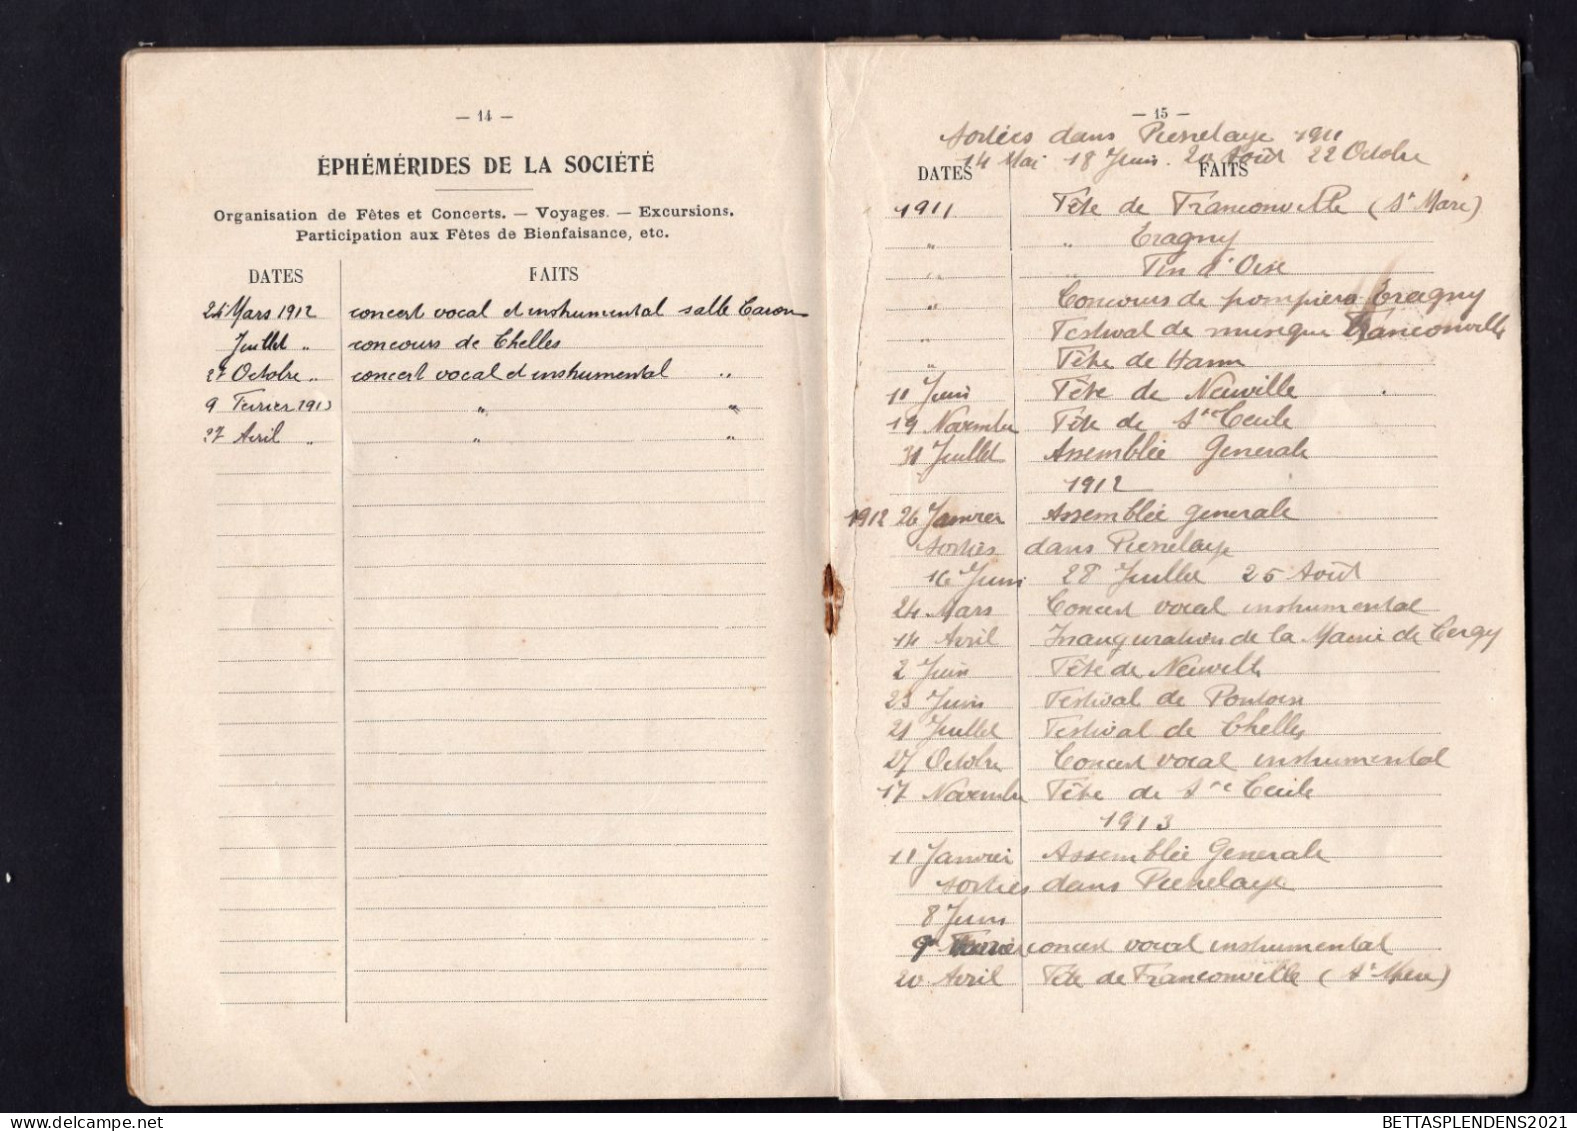 — 14 —
ÉPHÉMÉRIDES DE LA SOCIÉTÉ
Organisation de Fêtes et Concerts. — Voyages. — Excursions.
Participation aux Fêtes de Bienfaisance, etc.
DATES FAITS
24 Mars 1912 concert vocal et instrumental salle Caron
Juillet " concours de Chelles
27 Octobre " concert vocal et instrumental "
9 Fevrier 1913 " "
27 Avril " " "
— 15 —
Sorties dans Pierrelaye 1911
14 Mai 18 Juin. 20 Août 22 Octobre
DATES FAITS
1911 Fête de Franconville (St Marc)
" " Eragny
" " Fin d'Oise
" Concours de pompiers Eragny
" Festival de musique Franconville
" Fête de Ham
11 Juin Fête de Neuville
19 Novembre Fête de Ste Cecile
31 Juillet Assemblée Generale
1912
1912 26 Janvier Assemblée generale
Sorties dans Pierrelaye
16 Juin 28 Juillet 25 Août
24 Mars Concert vocal instrumental
14 Avril Inauguration de la Mairie de Cergy
2 Juin Fête de Neuville
23 Juin Festival de Pontoise
21 Juillet Festival de Chelles
27 Octobre Concert vocal instrumental
17 Novembre Fête de Ste Cecile
1913
11 Janvier Assemblée Generale
Sorties dans Pierrelaye
8 Juin
9 Fevrier concert vocal instrumental
20 Avril Fête de Franconville (St Marc)
BETTASPLENDENS2021